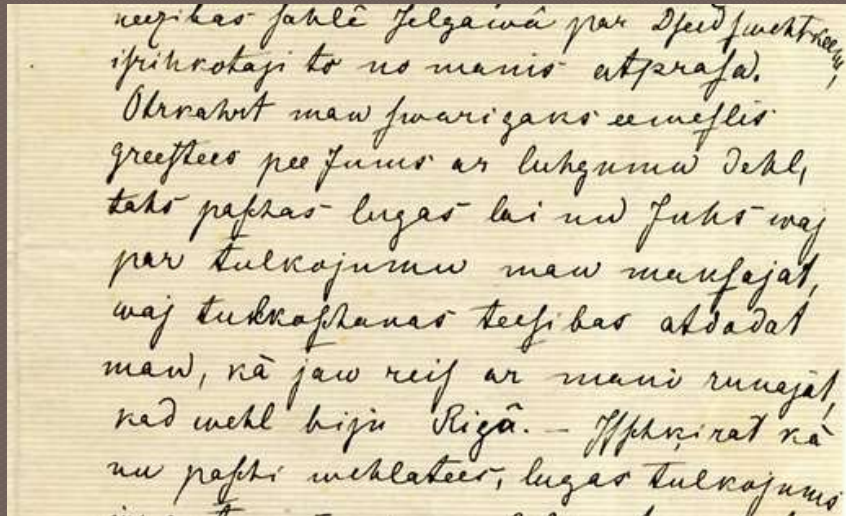 neezibas sahlê Jelgawâ par Dseedswehtkeem,
isrihkotaji to no manis atprasa.
Otrkahrt man swarigaks eemeslis
greestees pee Jums ar luhgumu dehl,
tahs paschas lugas lai nu Juhs waj
par tulkojumu man maksajat,
waj tulkoschanas teesibas atdodat
man, kâ jaw reis ar mani runajat,
kad wehl biju Rigâ. – Isschķirat kâ
nu paschi wehlatees, lugas tulkojums